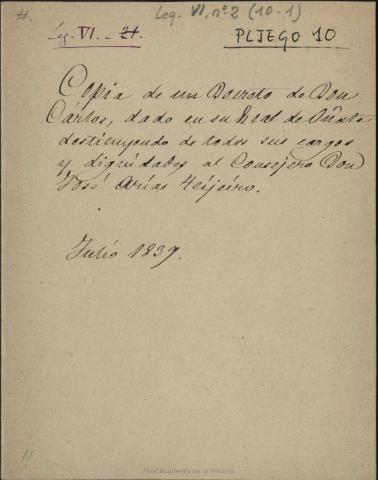 Leg. VI, nº 2 (10-1)
Leg. VI. - 21.
PLIEGO 10
Copia de un Decreto de Don
Cárlos, dado en su Real de Oñate
destituyendo de todos sus cargos
y dignidades al Consejero Don
José Arias Teijeiro.
Julio 1839.
11
Real Academia de la Historia